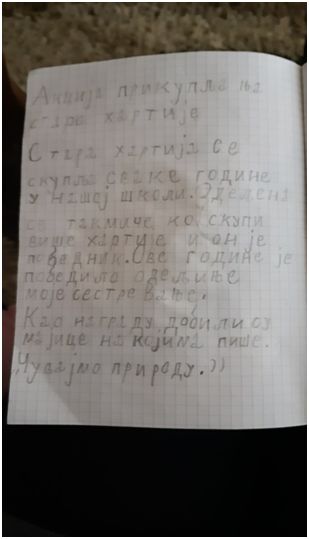 Акција прикупљања
старе хартије
Стара хартија се
скупља сваке године
у нашој школи. Оделена
се такмиче ко скупи
више хартије и он је
победник. Ове године је
победило одељиње
моје сестре Вање.
Као награду добили су
мајице на којима пише.
,,Чувајмо природу.))